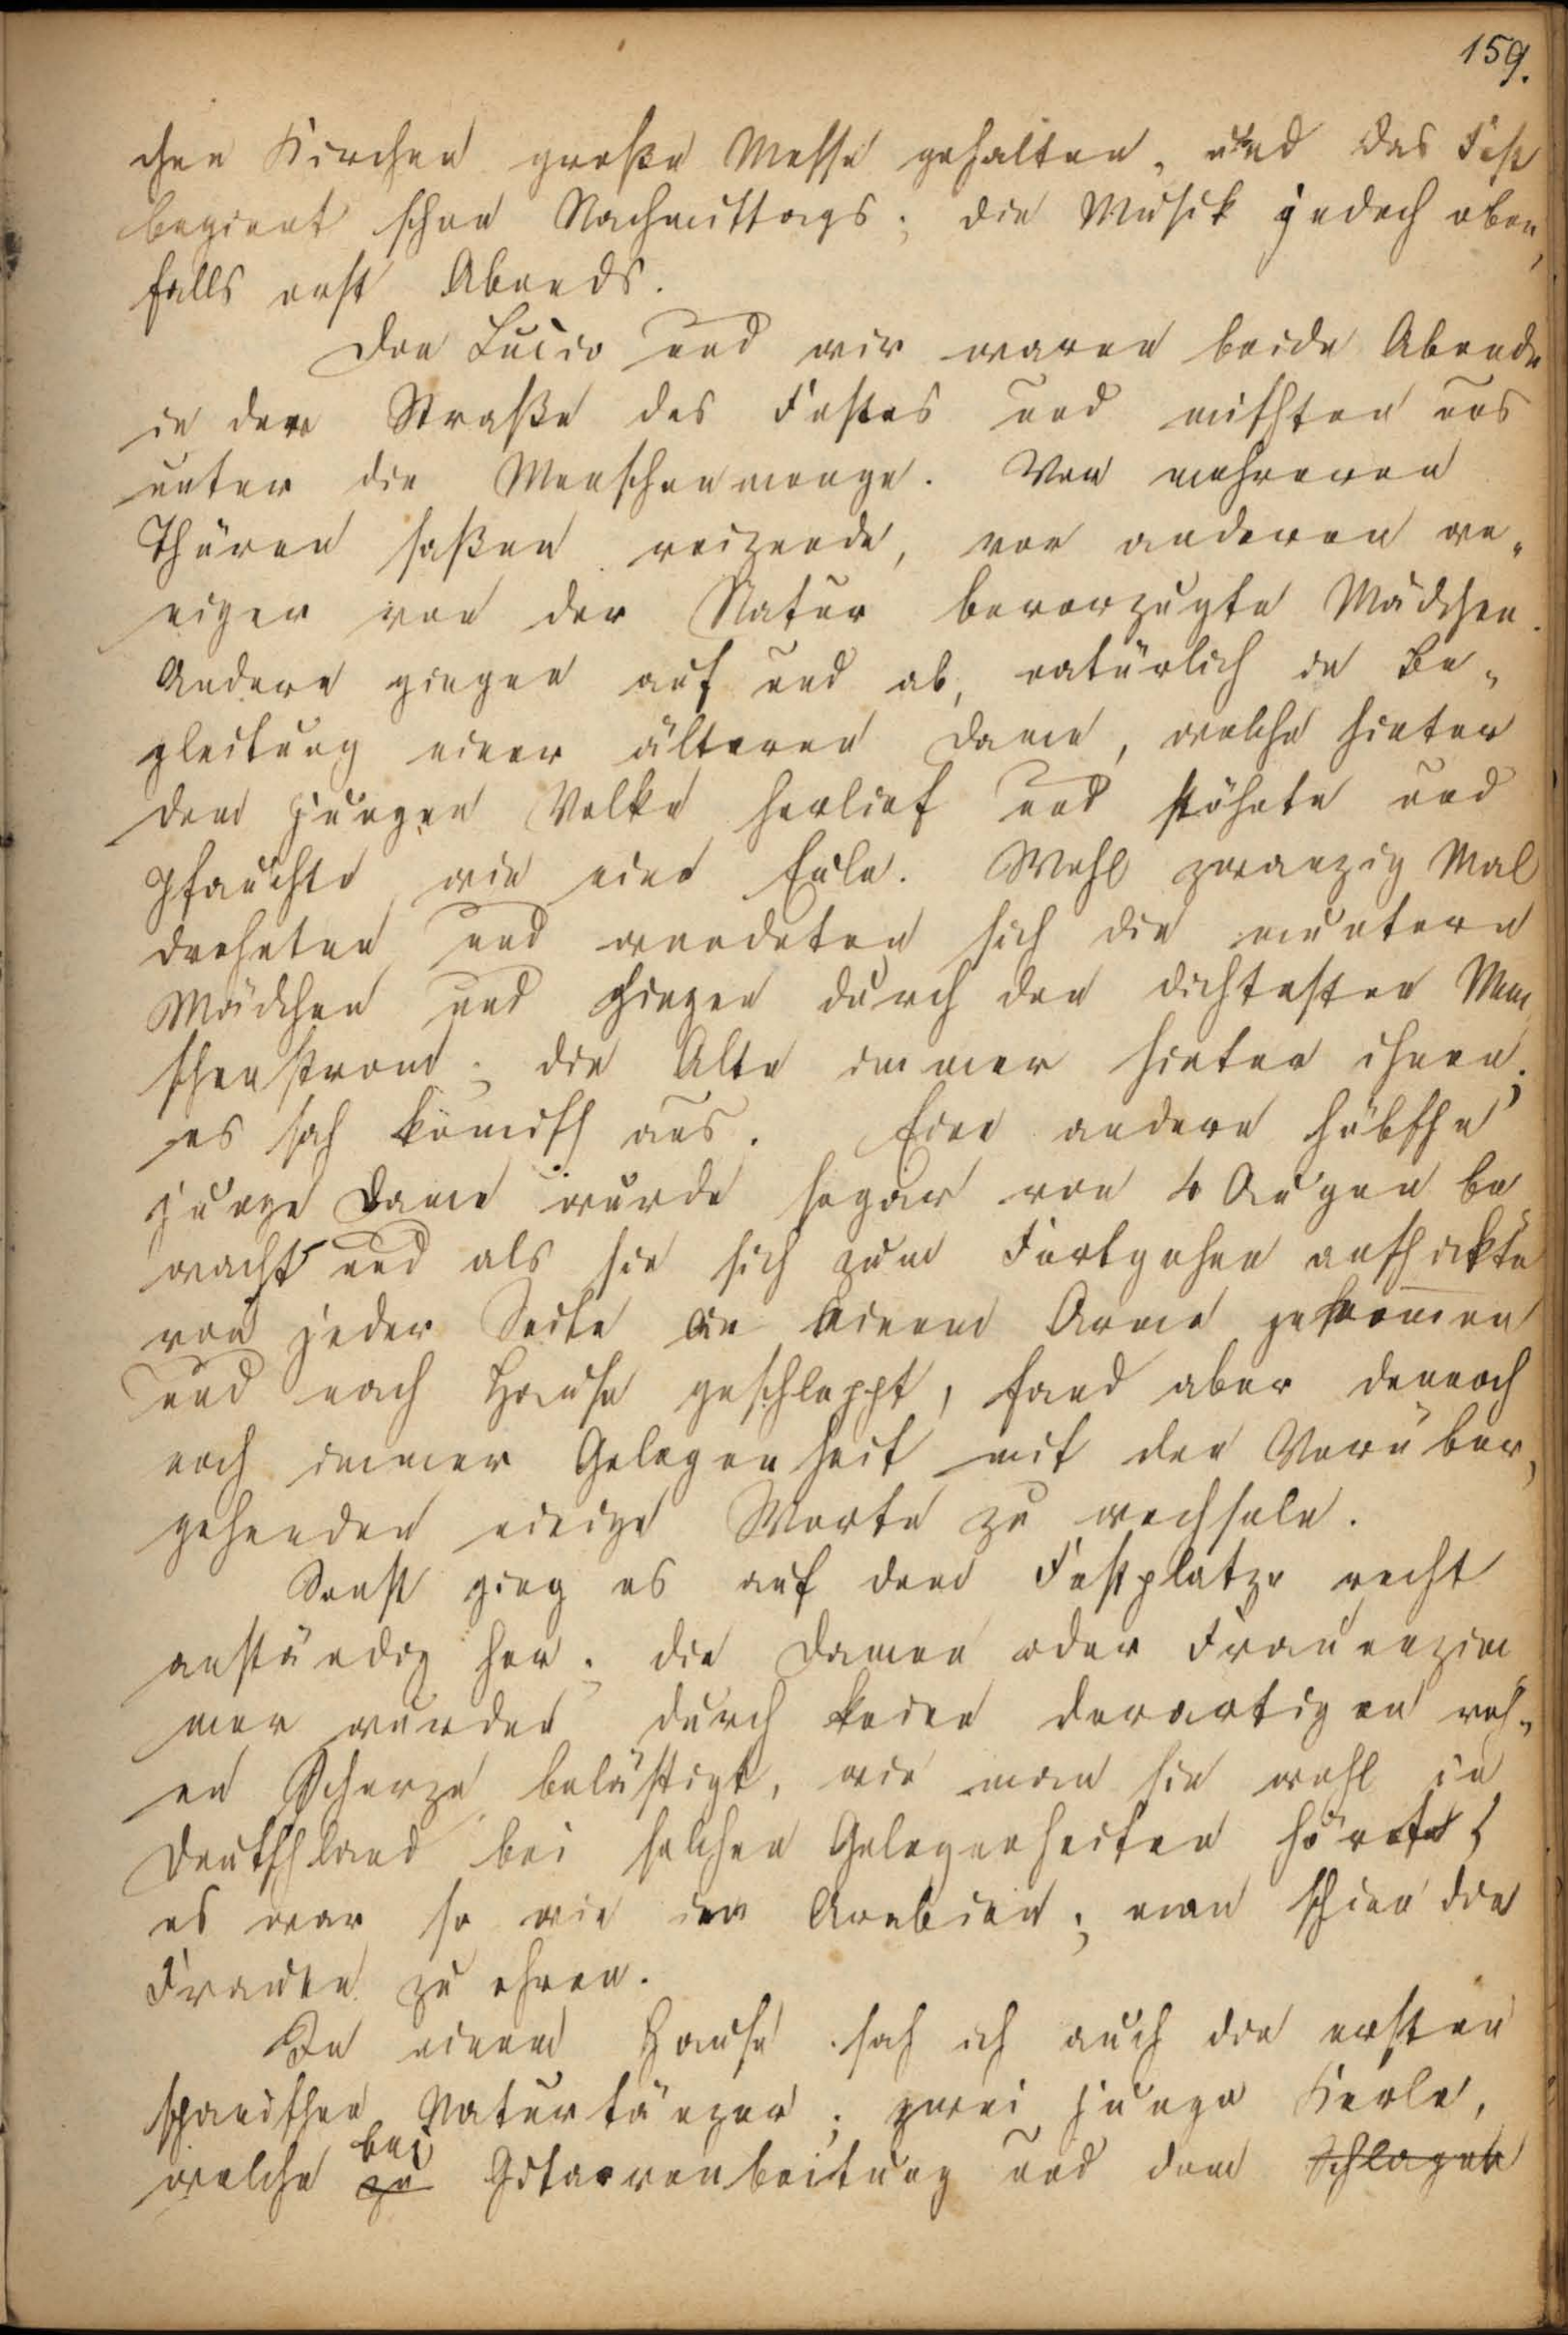 159.
chen Kirchen große Messe gehalten, und das Fest
begient schon Nachmittags; die Musik jedoch eben,
falls erst Abends.
Don Lucio und wir waren beide Abende
in der Straße des Festes und mischten uns
unter die Menschenmenge. Vor mehreren
Thüren saßen reizende, vor anderen we„
niger von der Natur bevorzugte Mädchen.
Andere gingen auf und ab, natürlich in Be„
gleitung einer älteren Dame, welche hinter
dem jungen Volke herlief und stöhnte und
pfauchte wie eine Eule. Wohl zwanzig Mal
drehten und wendeten sich die muntern
Mädchen und gingen durch den dichtesten Men
schenstrom; die Alte immer hinter ihnen;
es sah komisch aus. Eine andere hübsche
junge Dame wurde sogar von 4 Augen be
wacht und als sie sich zum Fortgehen anschickte
von jeder Seite an einem Arme genommen
und nach Hause geschleppt, fand aber dennoch
noch immer Gelegenheit mit den Vorüber,
gehenden einige Worte zu wechseln.
Sonst ging es auf dem Festplatze recht
anständig her; die Damen oder Frauenzim
mer wurden durch keine derartigen roh„
en Scherze belästigt, wie man sie wohl in
Deutschland bei solchen Gelegenheiten hört;
es war so wie in Arabien; man schien die
Frauen zu ehren.
In einem Hause sah ich auch die ersten
spanischen Naturtänzer; zwei junge Kerle,
welche zu bei Gitarrenbeitung und dem Schlagen